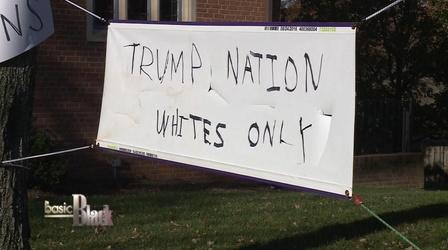 NS
TRUMP NATION
WHITES ONLY
basic
Black